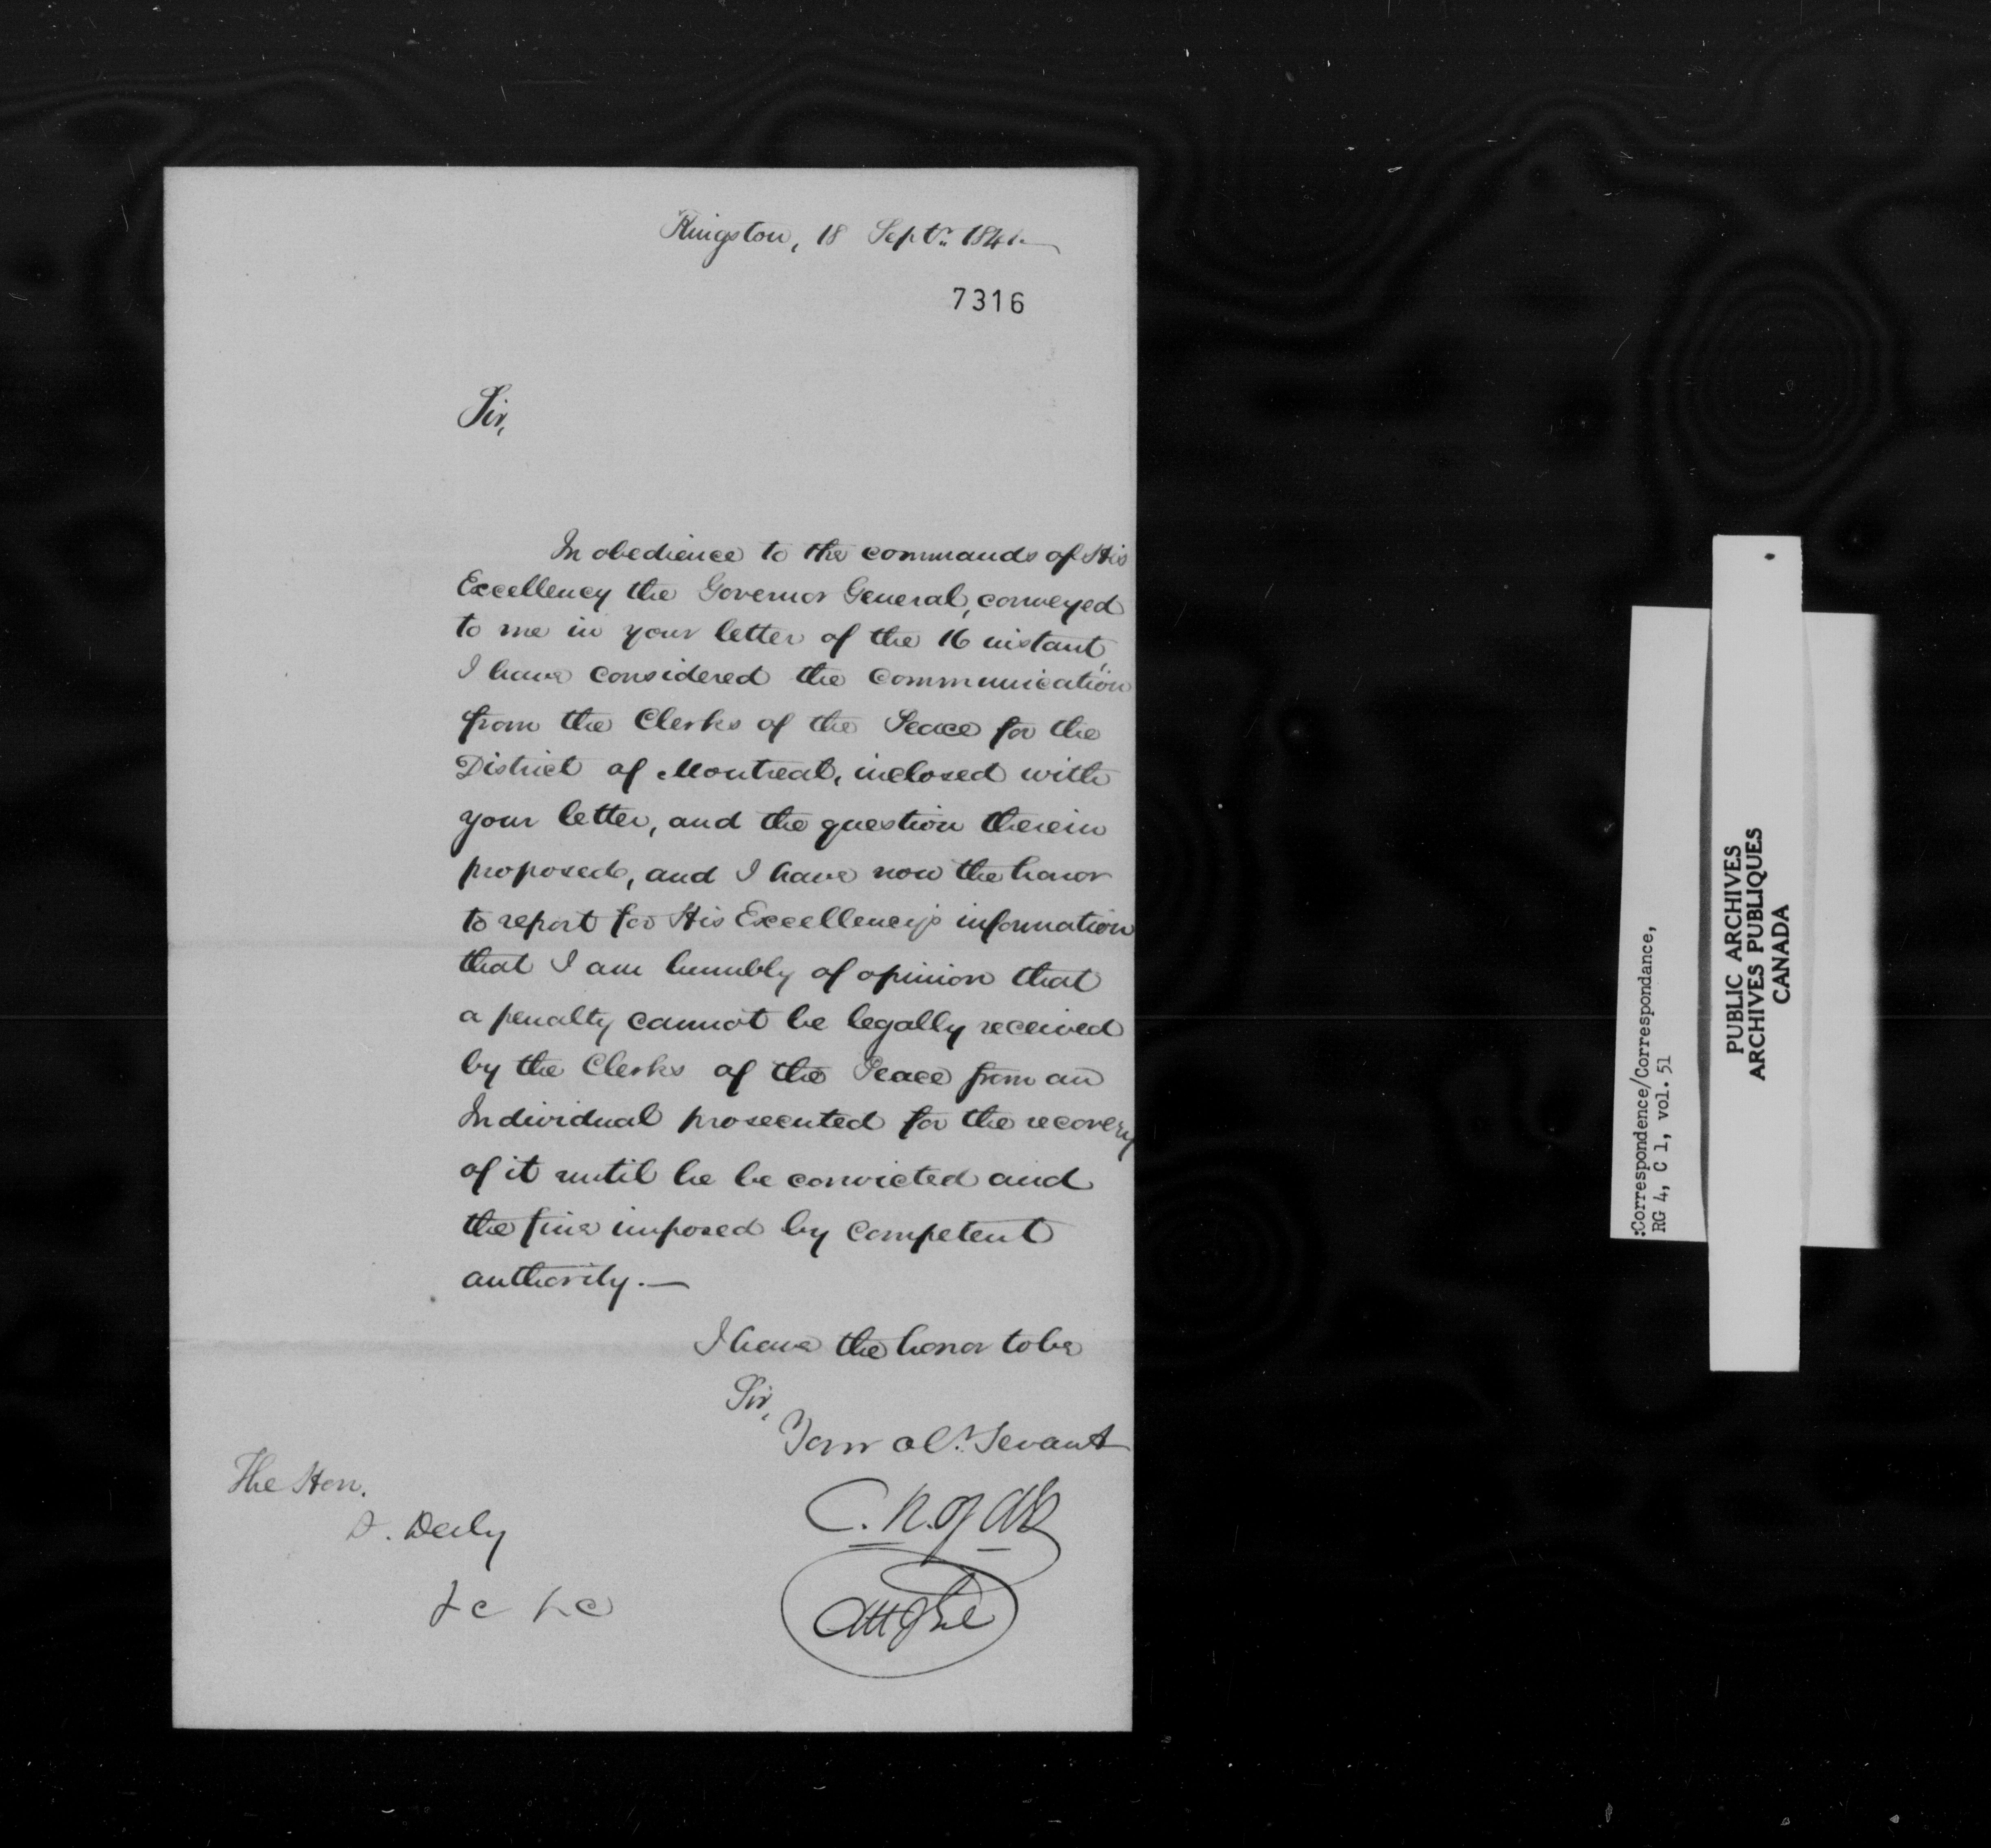 Kingston, 18 Septr. 1841.
7316
Sir,
In obedience to the commands of His
Excellency the Governor General, conveyed
to me in your letter of the 16 instant,
I have considered the communication
from the Clerks of the Peace for the
District of Montreal, inclosed with
your letter, and the question therein
proposed, and I have now the honor
to report for His Excellency's information
that I am humbly of opinion that
a penalty cannot be legally received
by the Clerks of the Peace from an
Individual prosecuted for the recovery
of it until he be convicted and
the fine imposed by competent
authority.—
I have the honor to be
Sir,
Your obt. Servant
C. R. Og
The Hon.
D. Daly
&c &c
:Correspondence/Correspondance,
RG 4, C 1, vol. 51
PUBLIC ARCHIVES
ARCHIVES PUBLIQUES
CANADA